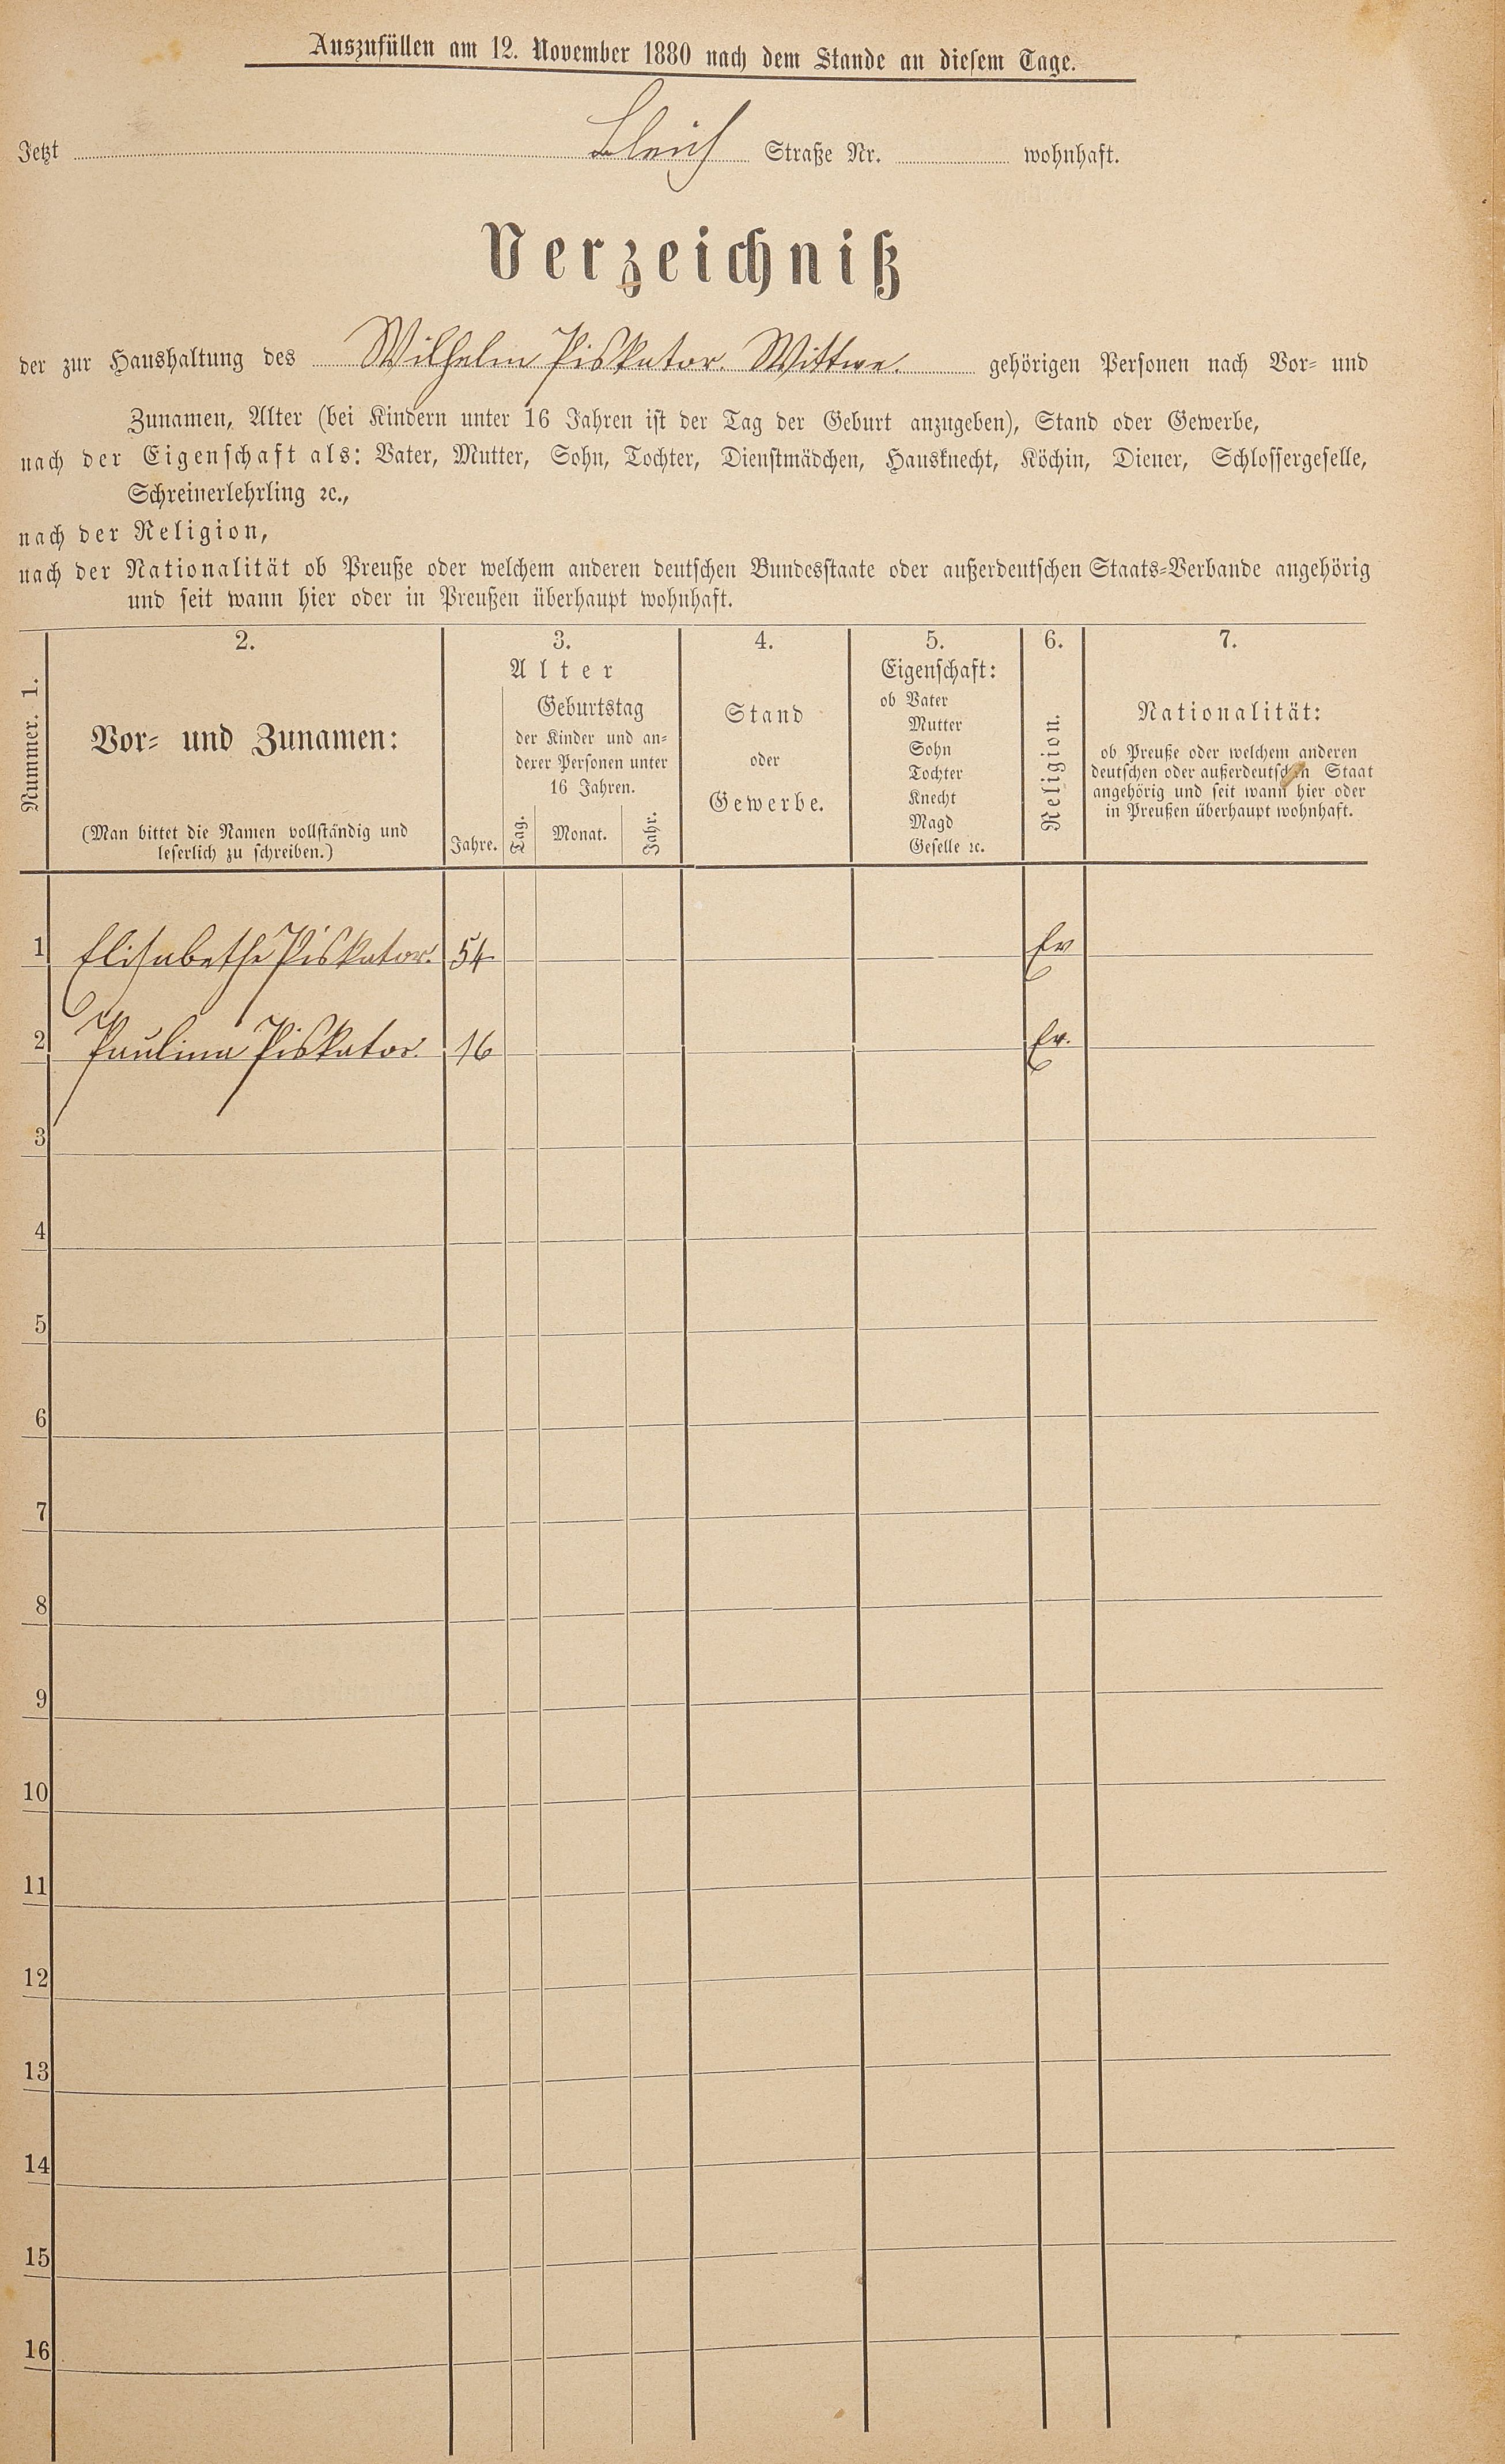 Auszufüllen am 12. November 1880 nach dem Stande an diesem Tage.
Jetzt Bleich Straße Nr. wohnhaft.
Verzeichniß
der zur Haushaltung des Wilhelm Piskator. Wittwe. gehörigen Personen nach Vor- und
Zunamen, Alter (bei Kindern unter 16 Jahren ist der Tag der Geburt anzugeben), Stand oder Gewerbe,
nach der Eigenschaft als: Vater, Mutter, Sohn, Tochter, Dienstmädchen, Hausknecht, Köchin, Diener, Schlossergeselle,
Schreinerlehrling ꝛc.,
nach der Religion,
nach der Nationalität ob Preuße oder welchem anderen deutschen Bundesstaate oder außerdeutschen Staats-Verbande angehörig
und seit wann hier oder in Preußen überhaupt wohnhaft.
Nummer. 1.
2.
Vor- und Zunamen:
(Man bittet die Namen vollständig und
leserlich zu schreiben.)
3.
Alter
Jahre.
Geburtstag
der Kinder und an-
derer Personen unter
16 Jahren.
Tag. Monat. Jahr.
4.
Stand
oder
Gewerbe.
5.
Eigenschaft:
ob Vater
Mutter
Sohn
Tochter
Knecht
Magd
Geselle ꝛc.
6.
Religion.
7.
Nationalität:
ob Preuße oder welchem anderen
deutschen oder außerdeutschen Staat
angehörig und seit wann hier oder
in Preußen überhaupt wohnhaft.
1 Elisabethe Piskator. 54 Ev
2 Paulina Piskator. 16 Ev.
3
4
5
6
7
8
9
10
11
12
13
14
15
16